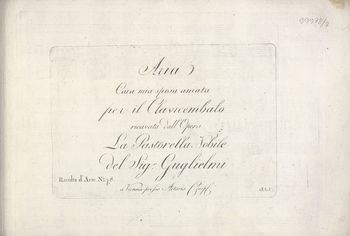 Aria
Cara mia sposa amata
per il Clavicembalo
ricavata dall'Opera
La Pastorella Nobile
del Sigr. Guglielmi
Raccolta d'Arie No. 78.
a Vienna presso Artaria Comp.